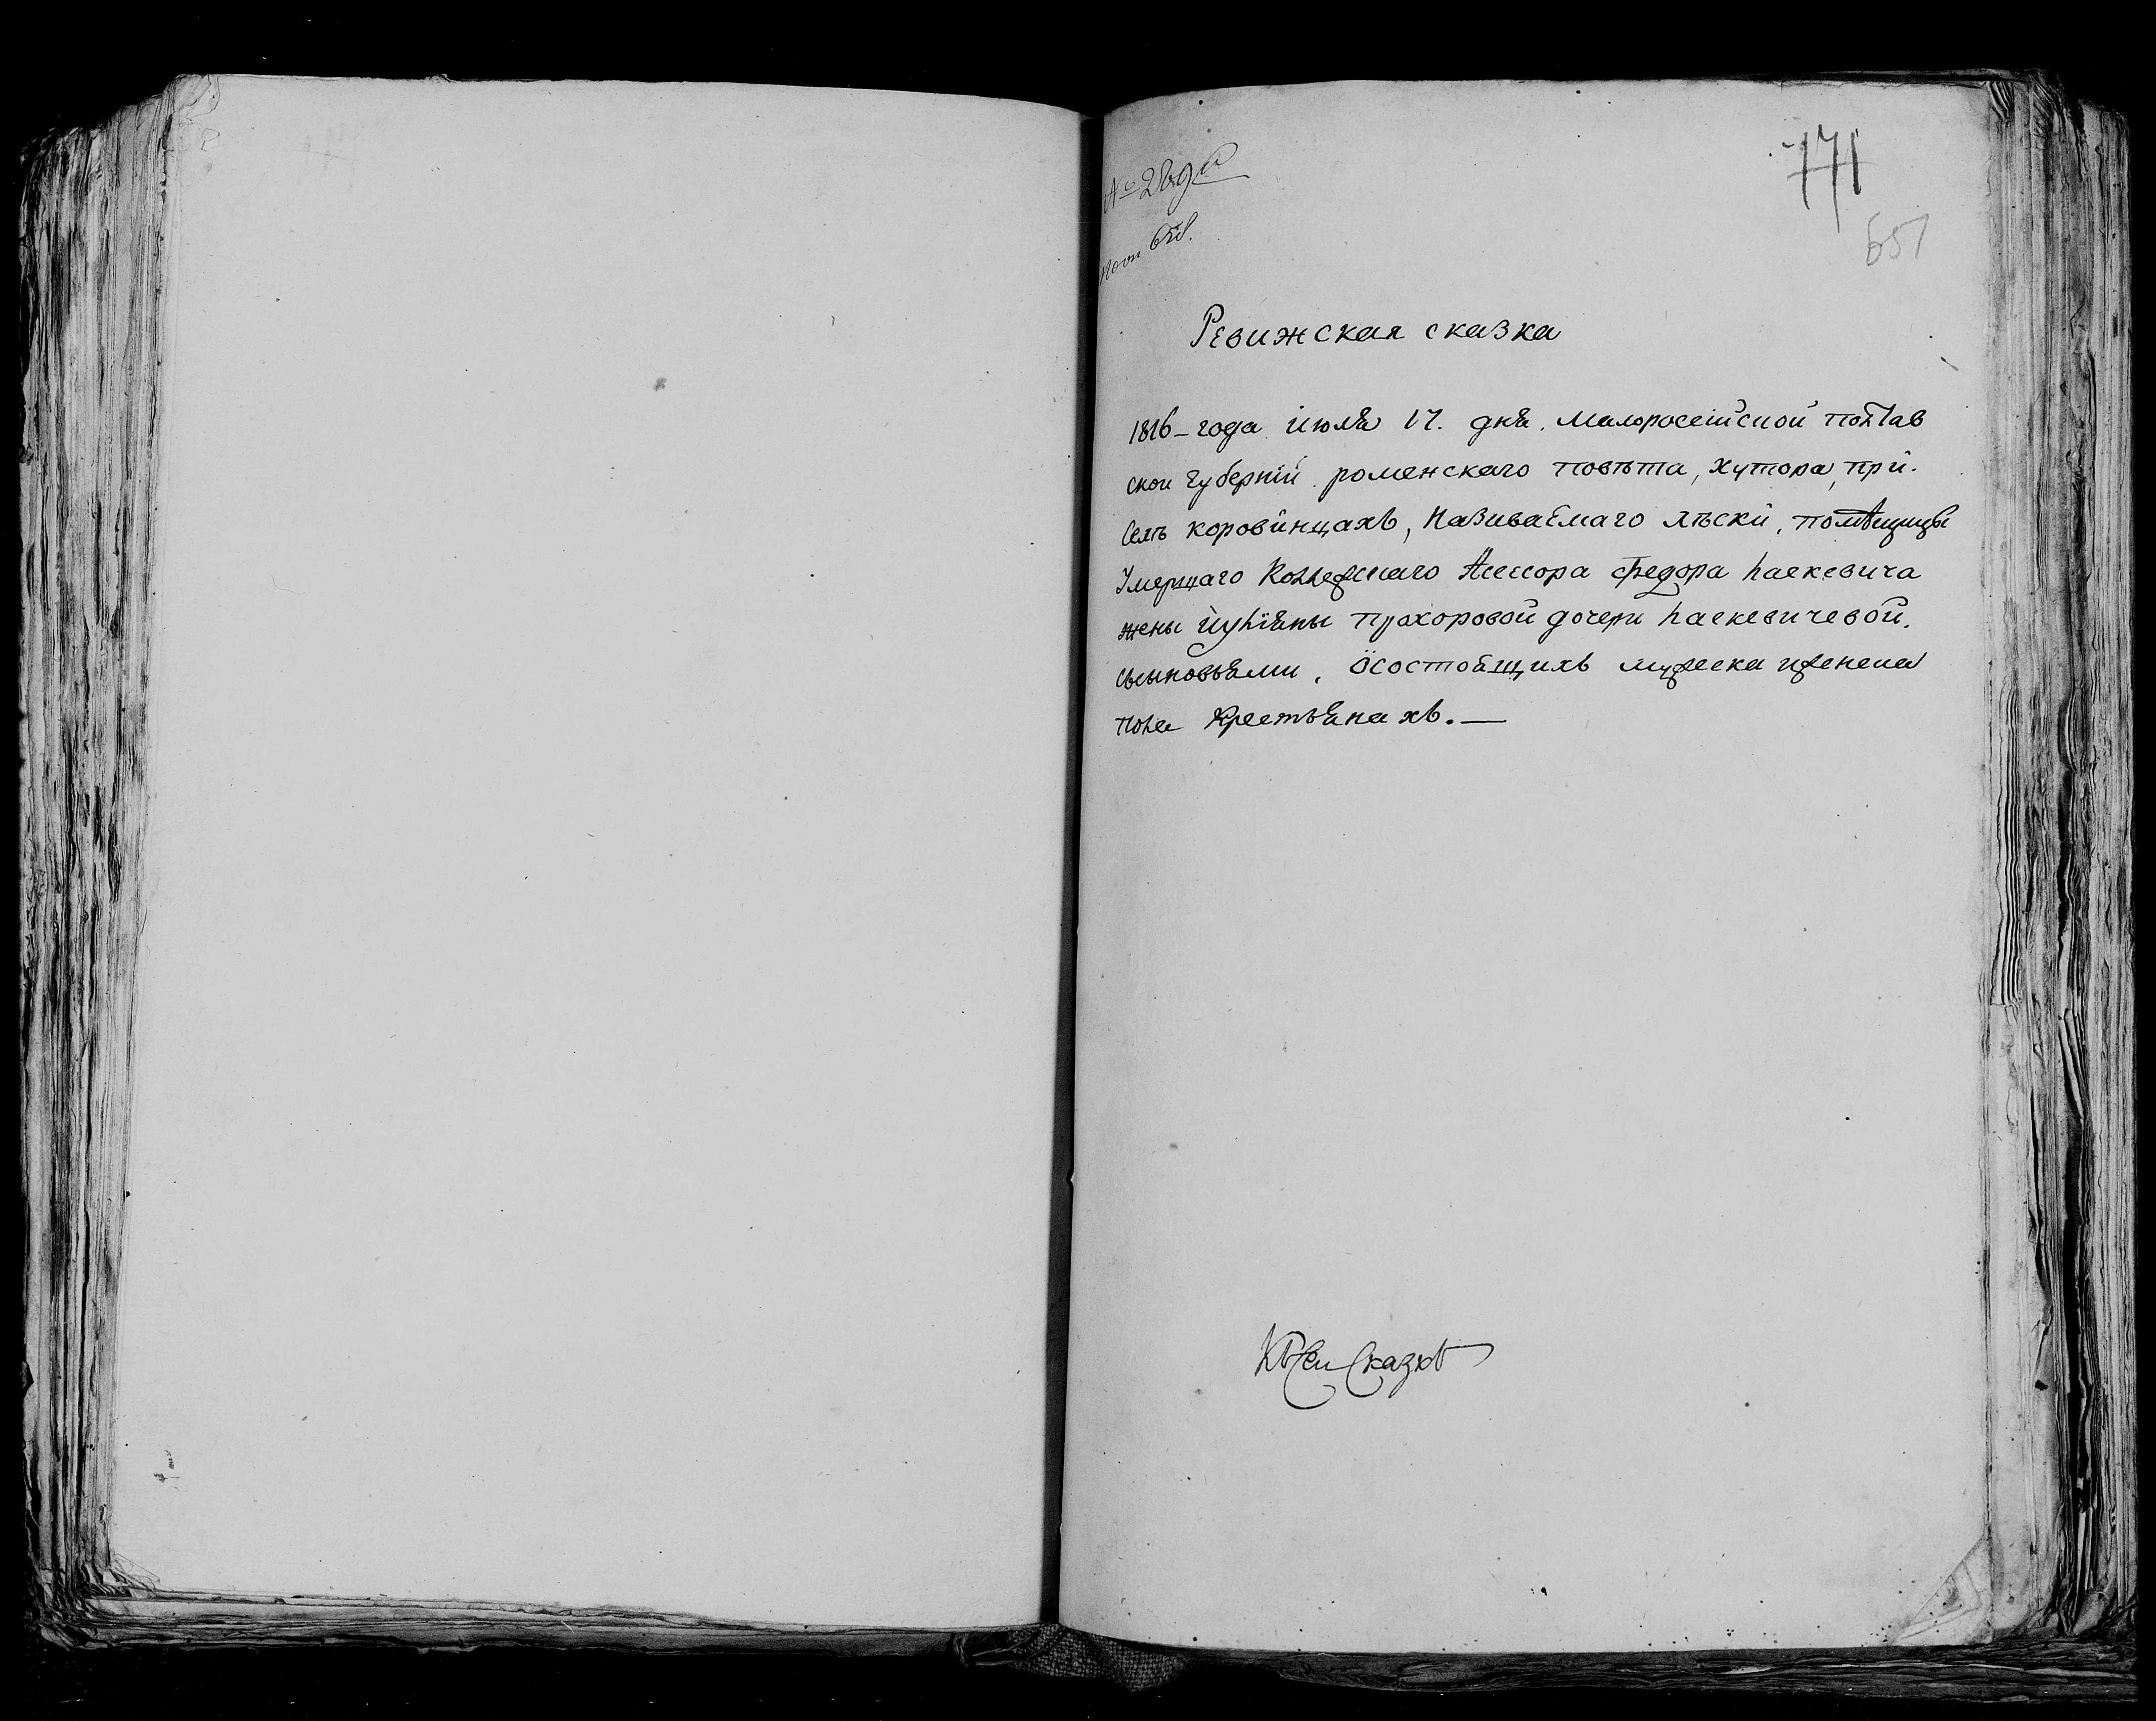 № 269й
771
651
Ревижская сказка
1816-года июля 17. дня. Малоросеійской полтав
ской губерніи роменскаго повѣта, хутора, при.
селѣ коровинцахъ, називаемаго лѣски, помѣщицы
Умершаго Коллежскаго Асессора Федора Паскевича
жены Иуліяны прохоровой дочери Паскевичевой.
сыновьями, Осостоящихъ мужеска иженска
пола Крестьянахъ.—
Къ Сей Сказкѣ